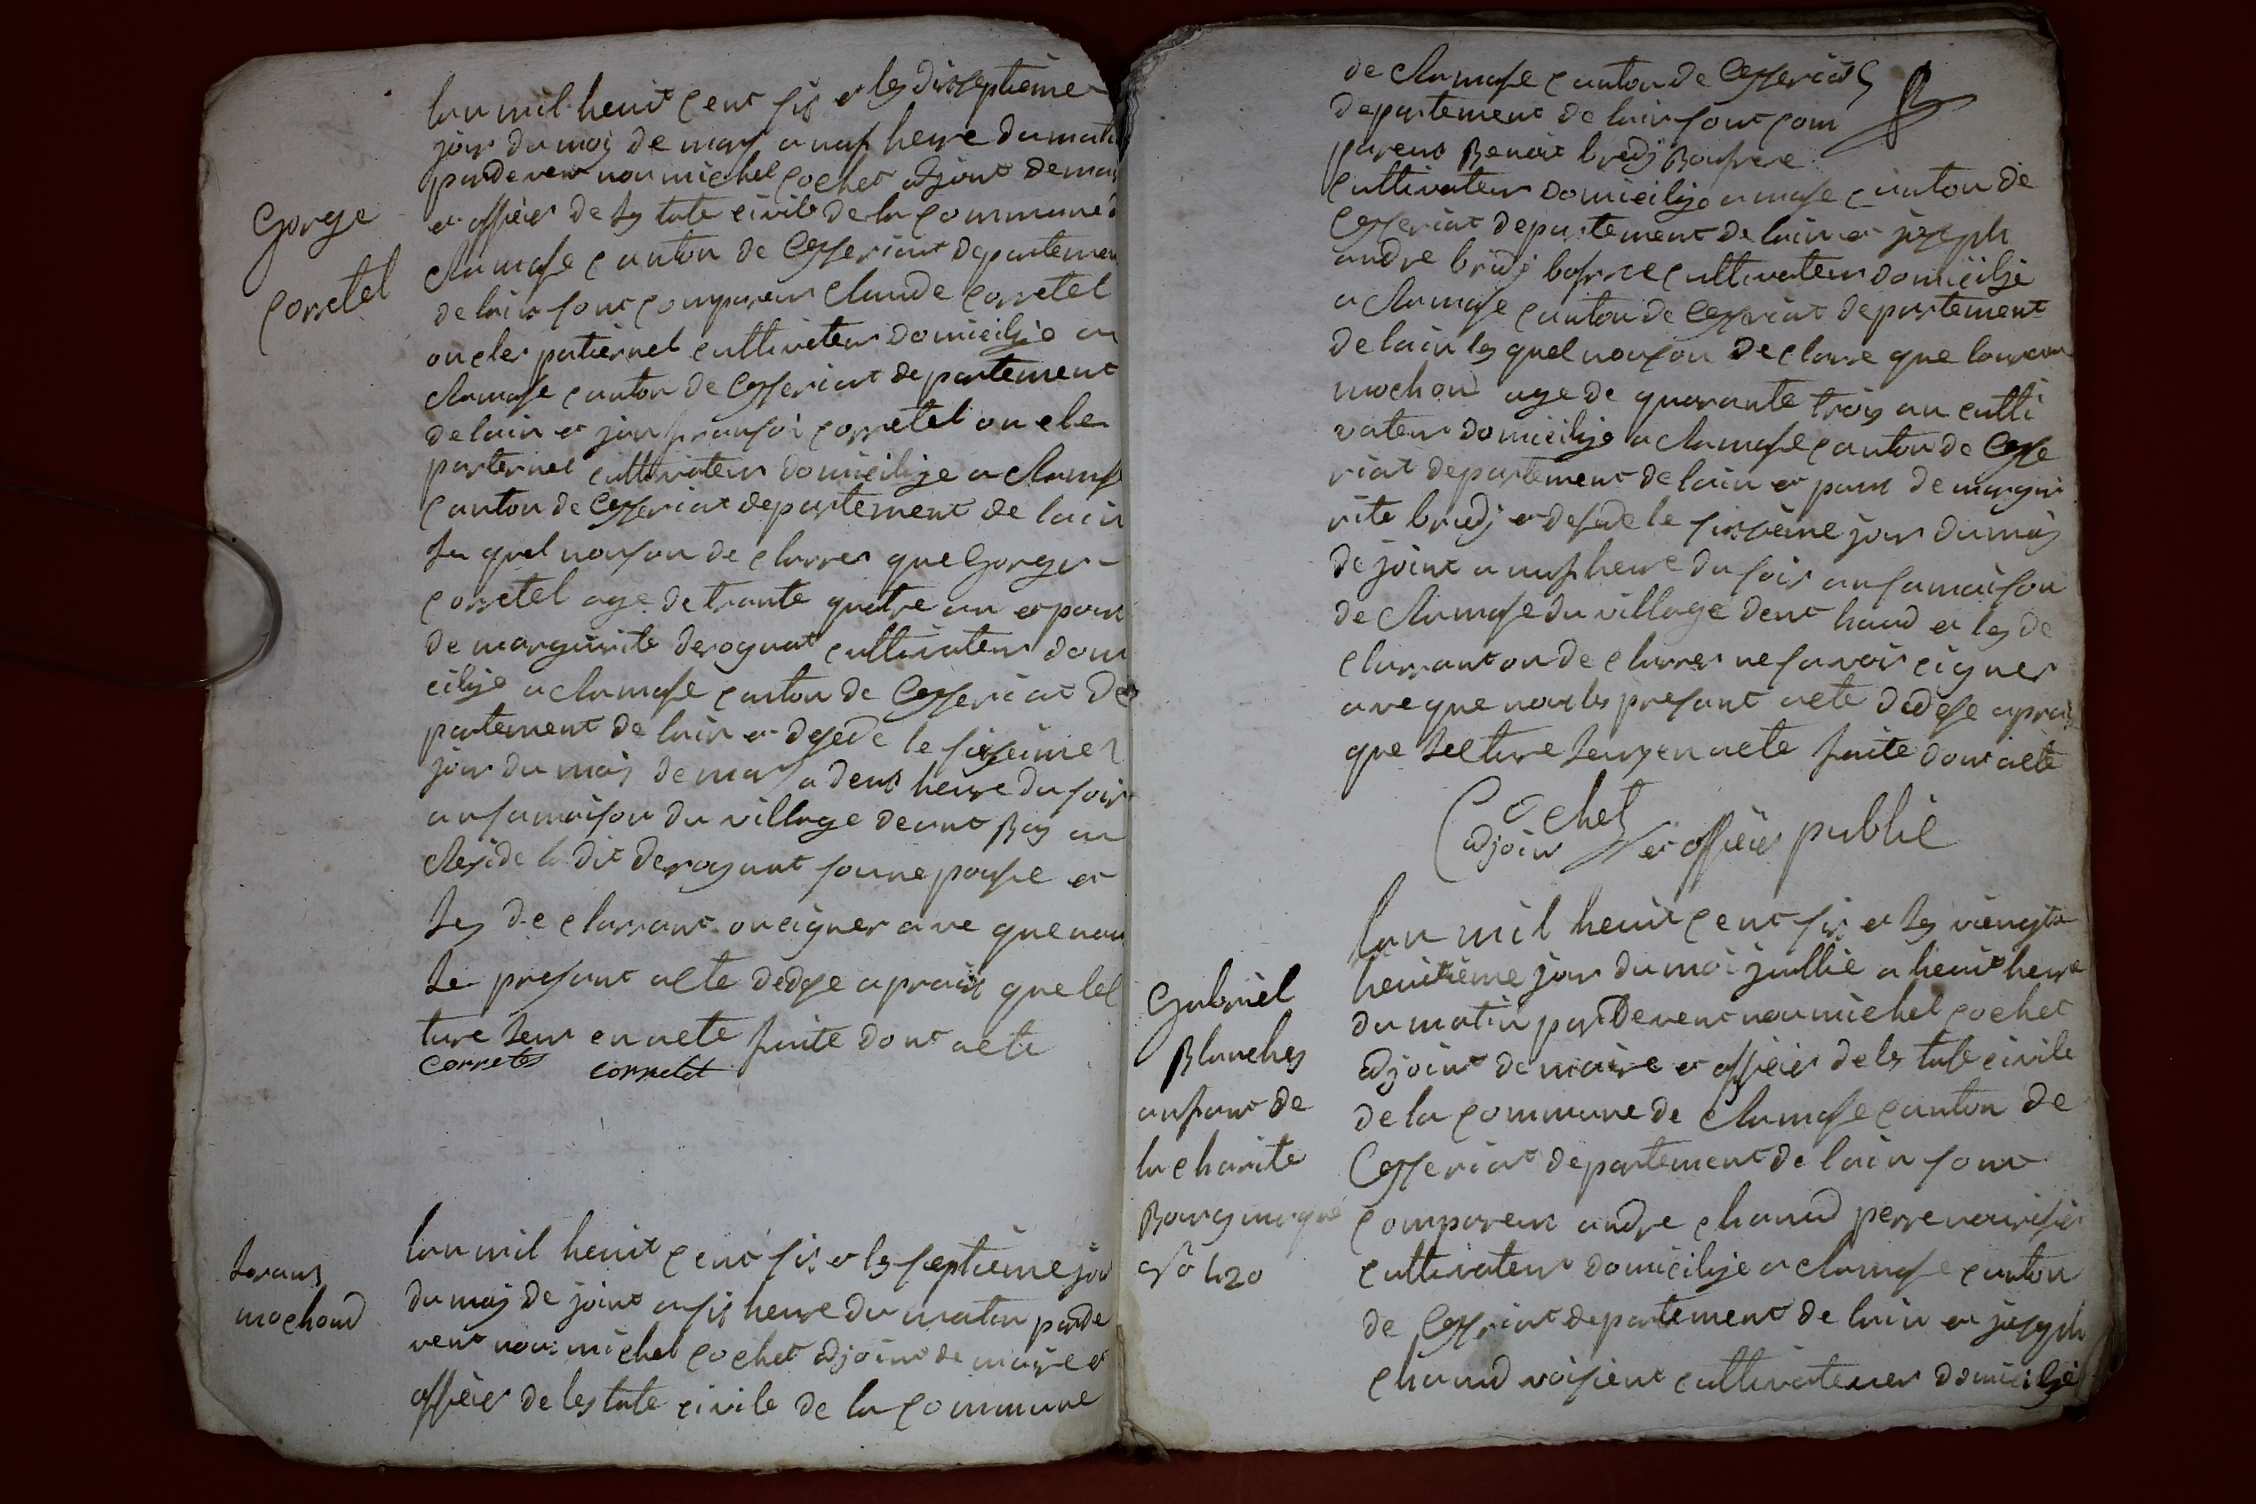 Gorge
Corretel
lan mil heuit cent sis et les disseptieme
jour du mois de mars a nuf heure du matin
pardevent nou michel cochet adjoint de mai
et officier de les tate civile de la commune d
clumase canton de Ceyseriat departemen
de lain sont compareus claude Corretel
oncler patiernel cultivateur domicilie au
clumase canton de Ceyseriat departement
de lain et jan fransoi corretel oncler
parternel cultivateur domicilije a clumase
canton de Ceyseriat departement de lain
le quel nouson de clarrer que gorger
corretel age de trante quatre an et poux
de margurite derognat cultivateur dom
cilije a clumase canton de Ceyseriat de
partement de lain et desede le sisseime
jour du mois de mars a deus heure du soir
an sa maison du village de ant Bas au
la dit derognat soune pouse et
les de clarrant on cigner ave que nou
le presant acte dedse aprais que lec
ture leur en aete faite dont acte
corretel corretel
lorans
mochond
lan mil heuit cent sis et les septieme jou
du mois de joint a sis heure du matin parde
vent nou michel cochet adjoint de maire et
officier de les tate civile de la commune
de clumase canton de Ceyseriat
departement de lain sont com
pareus Benoit bredj Baufrere
cultivateur domicilije a mase canton de
Ceyseriat departement de lain et joseph
andre bredj bofrere cultivateur domicilije
a clumase canton de Ceyseriat departement
de lain les quel nouson declare que lorans
mochon age de quarante trois an culti
vateur domicilije a clumase canton de Ceyse
riat departement de lain et poux de margui
rite bredj et desede le sisseime jour du mois
de joint a nuf heure du soir an sa maison
de clumase du village dent haud et les de
clarrant on de clarrer ne savoir cigner
aveque nou les presant acte dedse aprais
que lecture leur en aete faite dont acte
Cochet
adjoin et officier public
Gabriel
Blanches
anfant de
la charite
Bourg
no 420
lan mil heuit cent sis et les viengte
heuitieme jour du moi jullie a heuit heure
du matin par Devent nou michel cochet
adjoint de maire et officier de les tate civile
de la commune de clumase canton de
Ceyseriat departement de lain sont
compareus andre chanud perre nourisier
cultivateur domicilije a clumase canton
de Ceyseriat departement de lain et joseph
chanud voisient cultivateuer domicilje